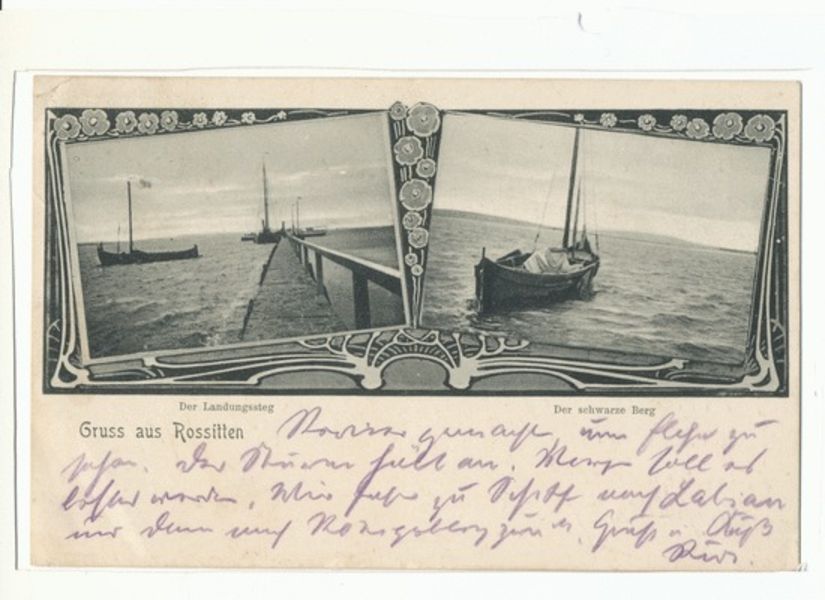 Der Landungssteg
Der schwarze Berg
Gruss aus Rossitten
gemacht, um Elche zu
sehen. Der Sturm hält an. Morgen soll es
besser werden. Wir fahren zu Schiff nach Labiau
und dann nach Königsberg zurück. Gruß u. Kuß